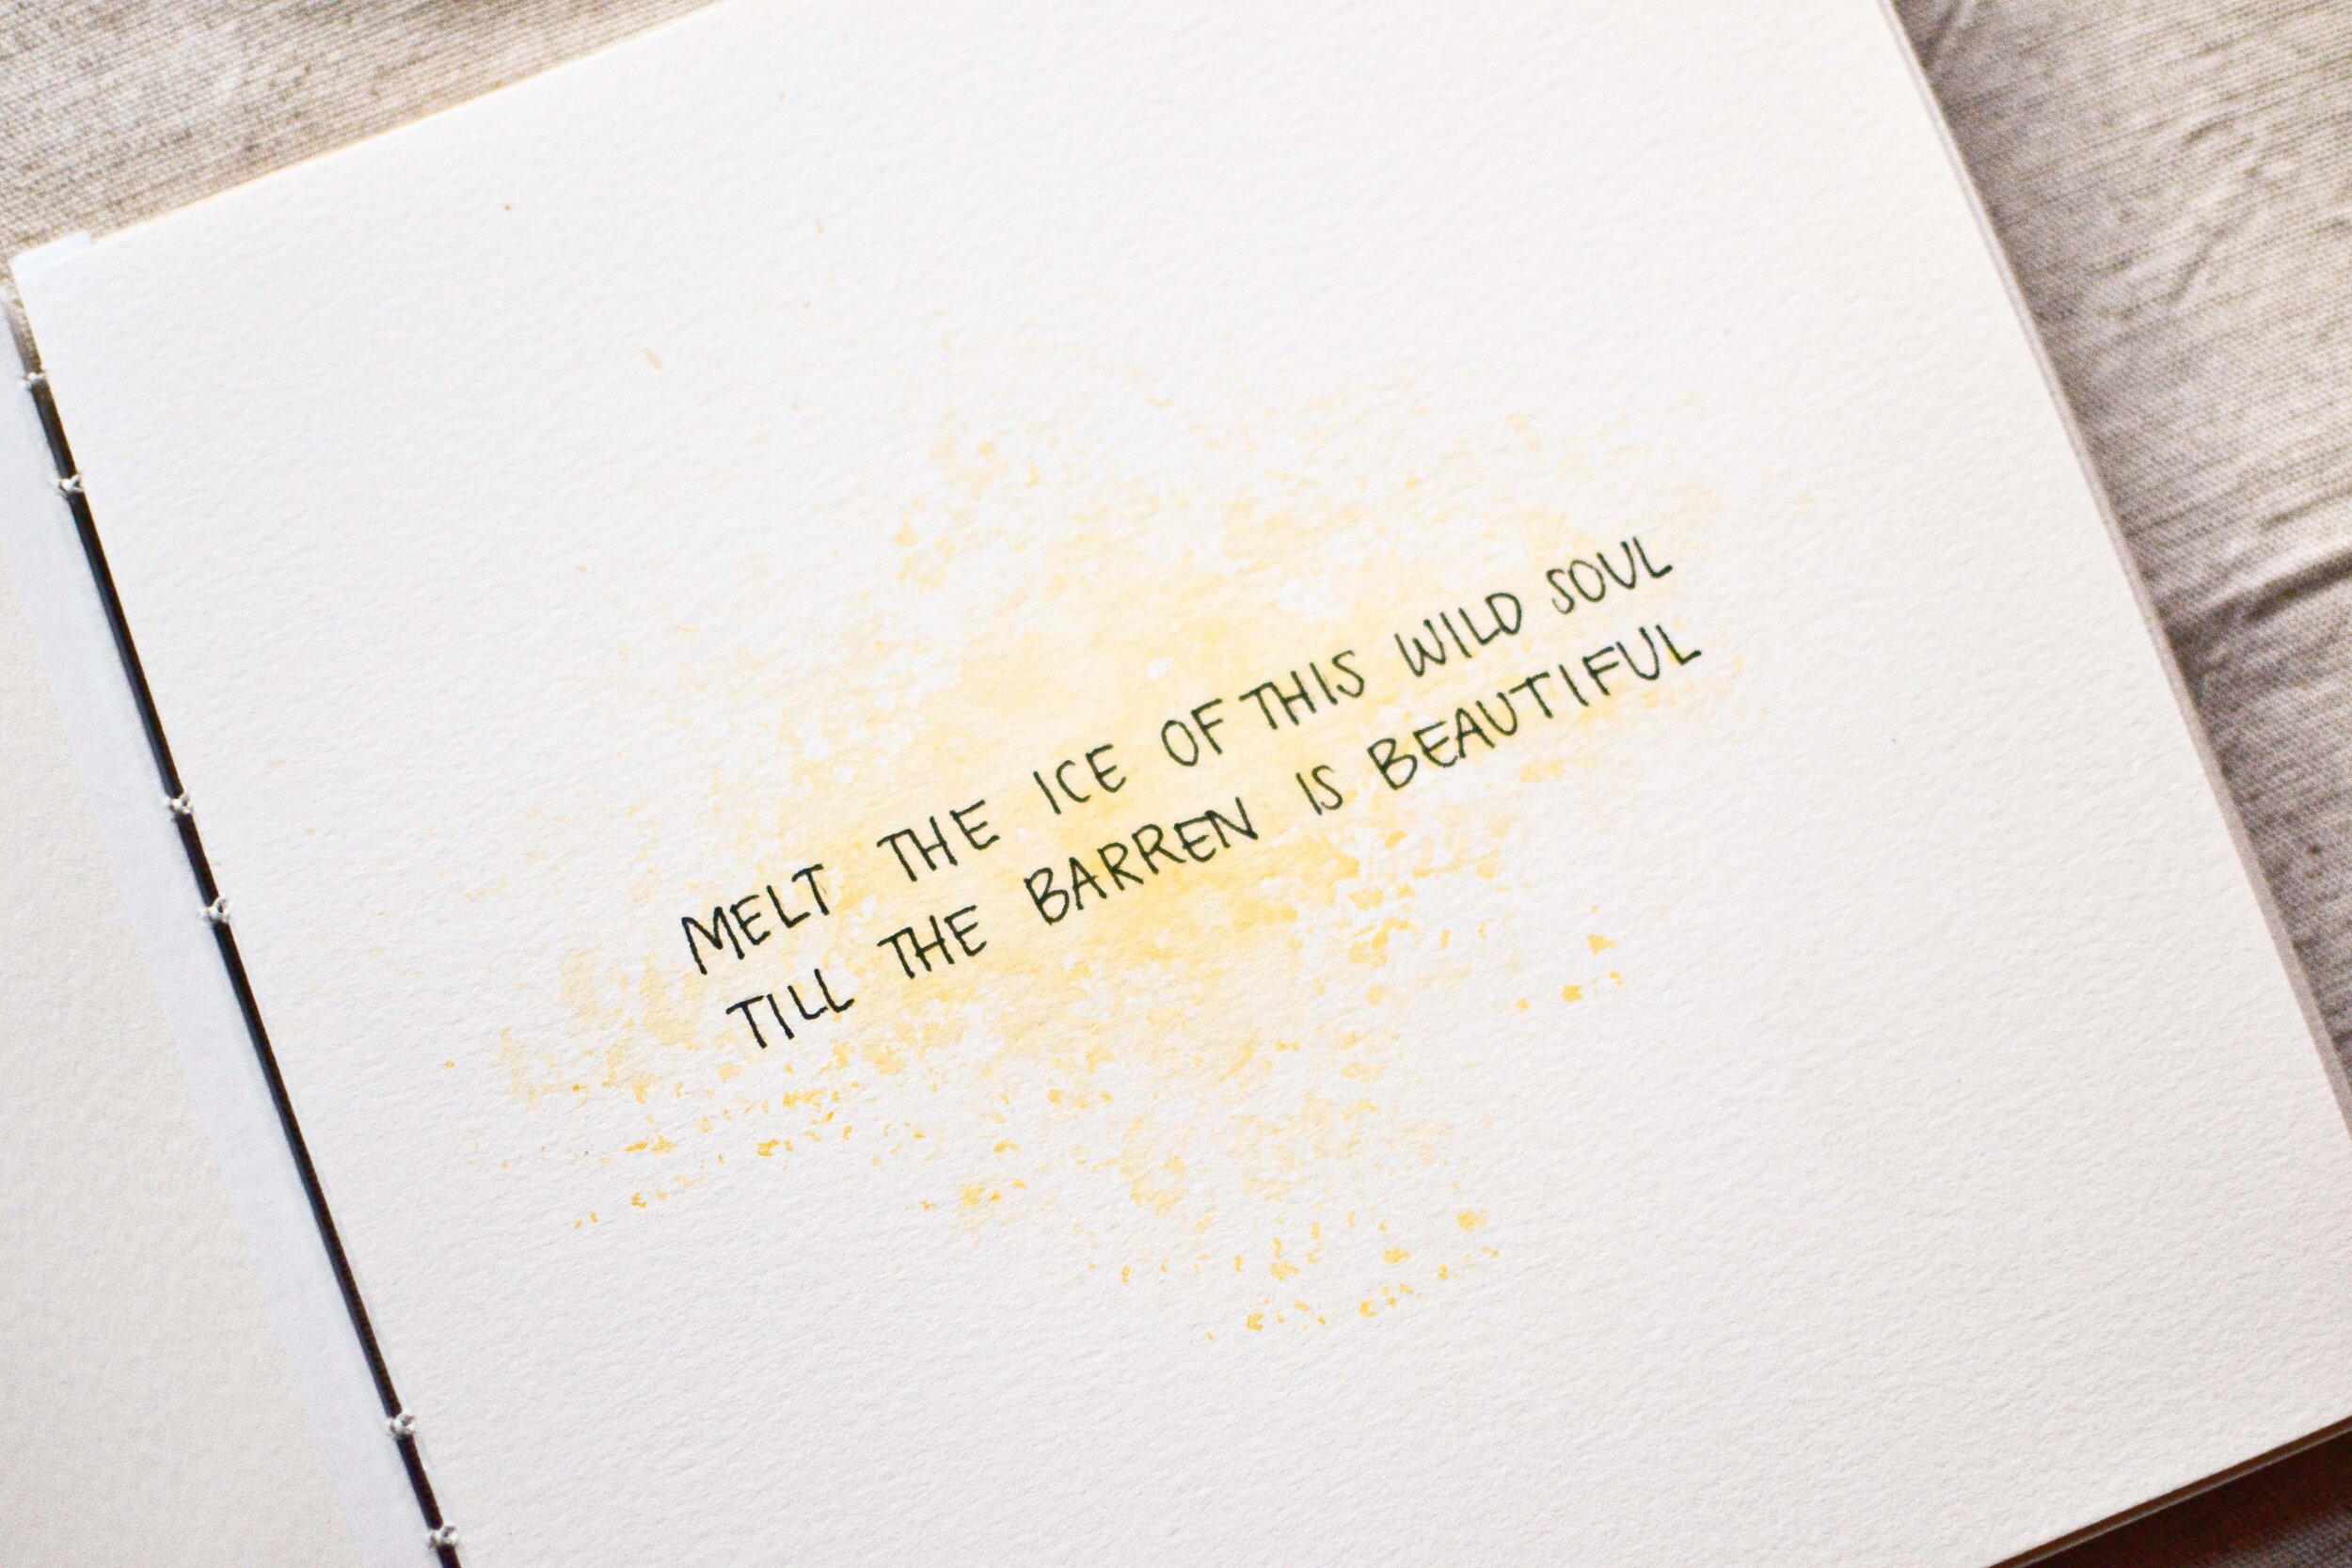 MELT THE ICE OF THIS WILD SOUL
TILL THE BARREN IS BEAUTIFUL